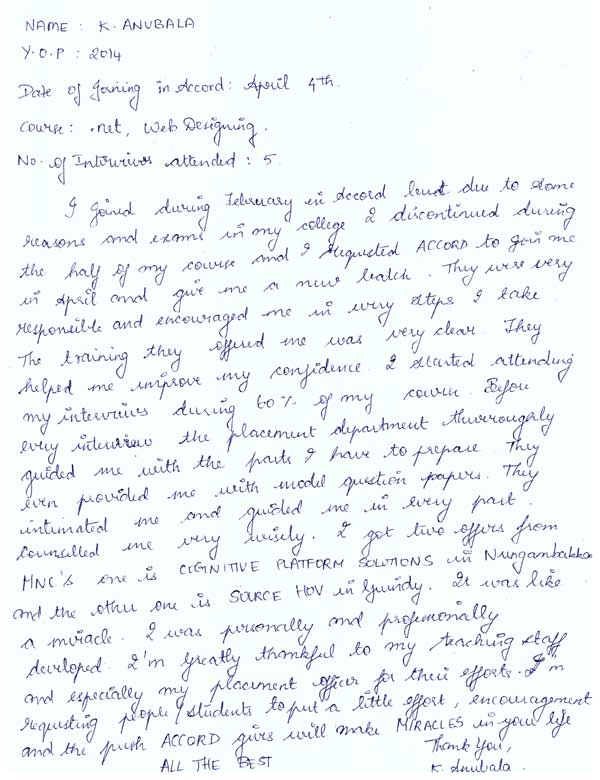 NAME : K. ANUBALA
Y.O.P : 2014
Date of Joining in Accord : April 4th.
Course : .net, Web Designing.
No. of Interviews attended : 5
I joined during February in Accord but due to some
reasons and exams in my college I discontinued during
the half of my course and I requested ACCORD to join me
in April and give me a new batch. They were very
responsible and encouraged me in every steps I take
The training they offered me was very clear. They
helped me improve my confidence. I started attending
my interviews during 60% of my course. Before
every interview the placement department thurroughly
guided me with the parts I have to prepare. They
even provided me with model question papers. They
intimated me and guided me in every part.
Counselled me very wisely. I got two offers from
MNC's one is COGNITIVE PLATFORM SOLUTIONS in Nungambakka
and the other one is SOURCE HOV in Guindy. It was like
a miracle. I was personally and professionally
developed. I'm greatly thankful to my teaching staff
and especially my placement officer for their efforts. I'm
requesting people/students to put a little effort, encouragement
and the push ACCORD gives will make MIRACLES in your life
Thank You,
ALL THE BEST K. Anubala.